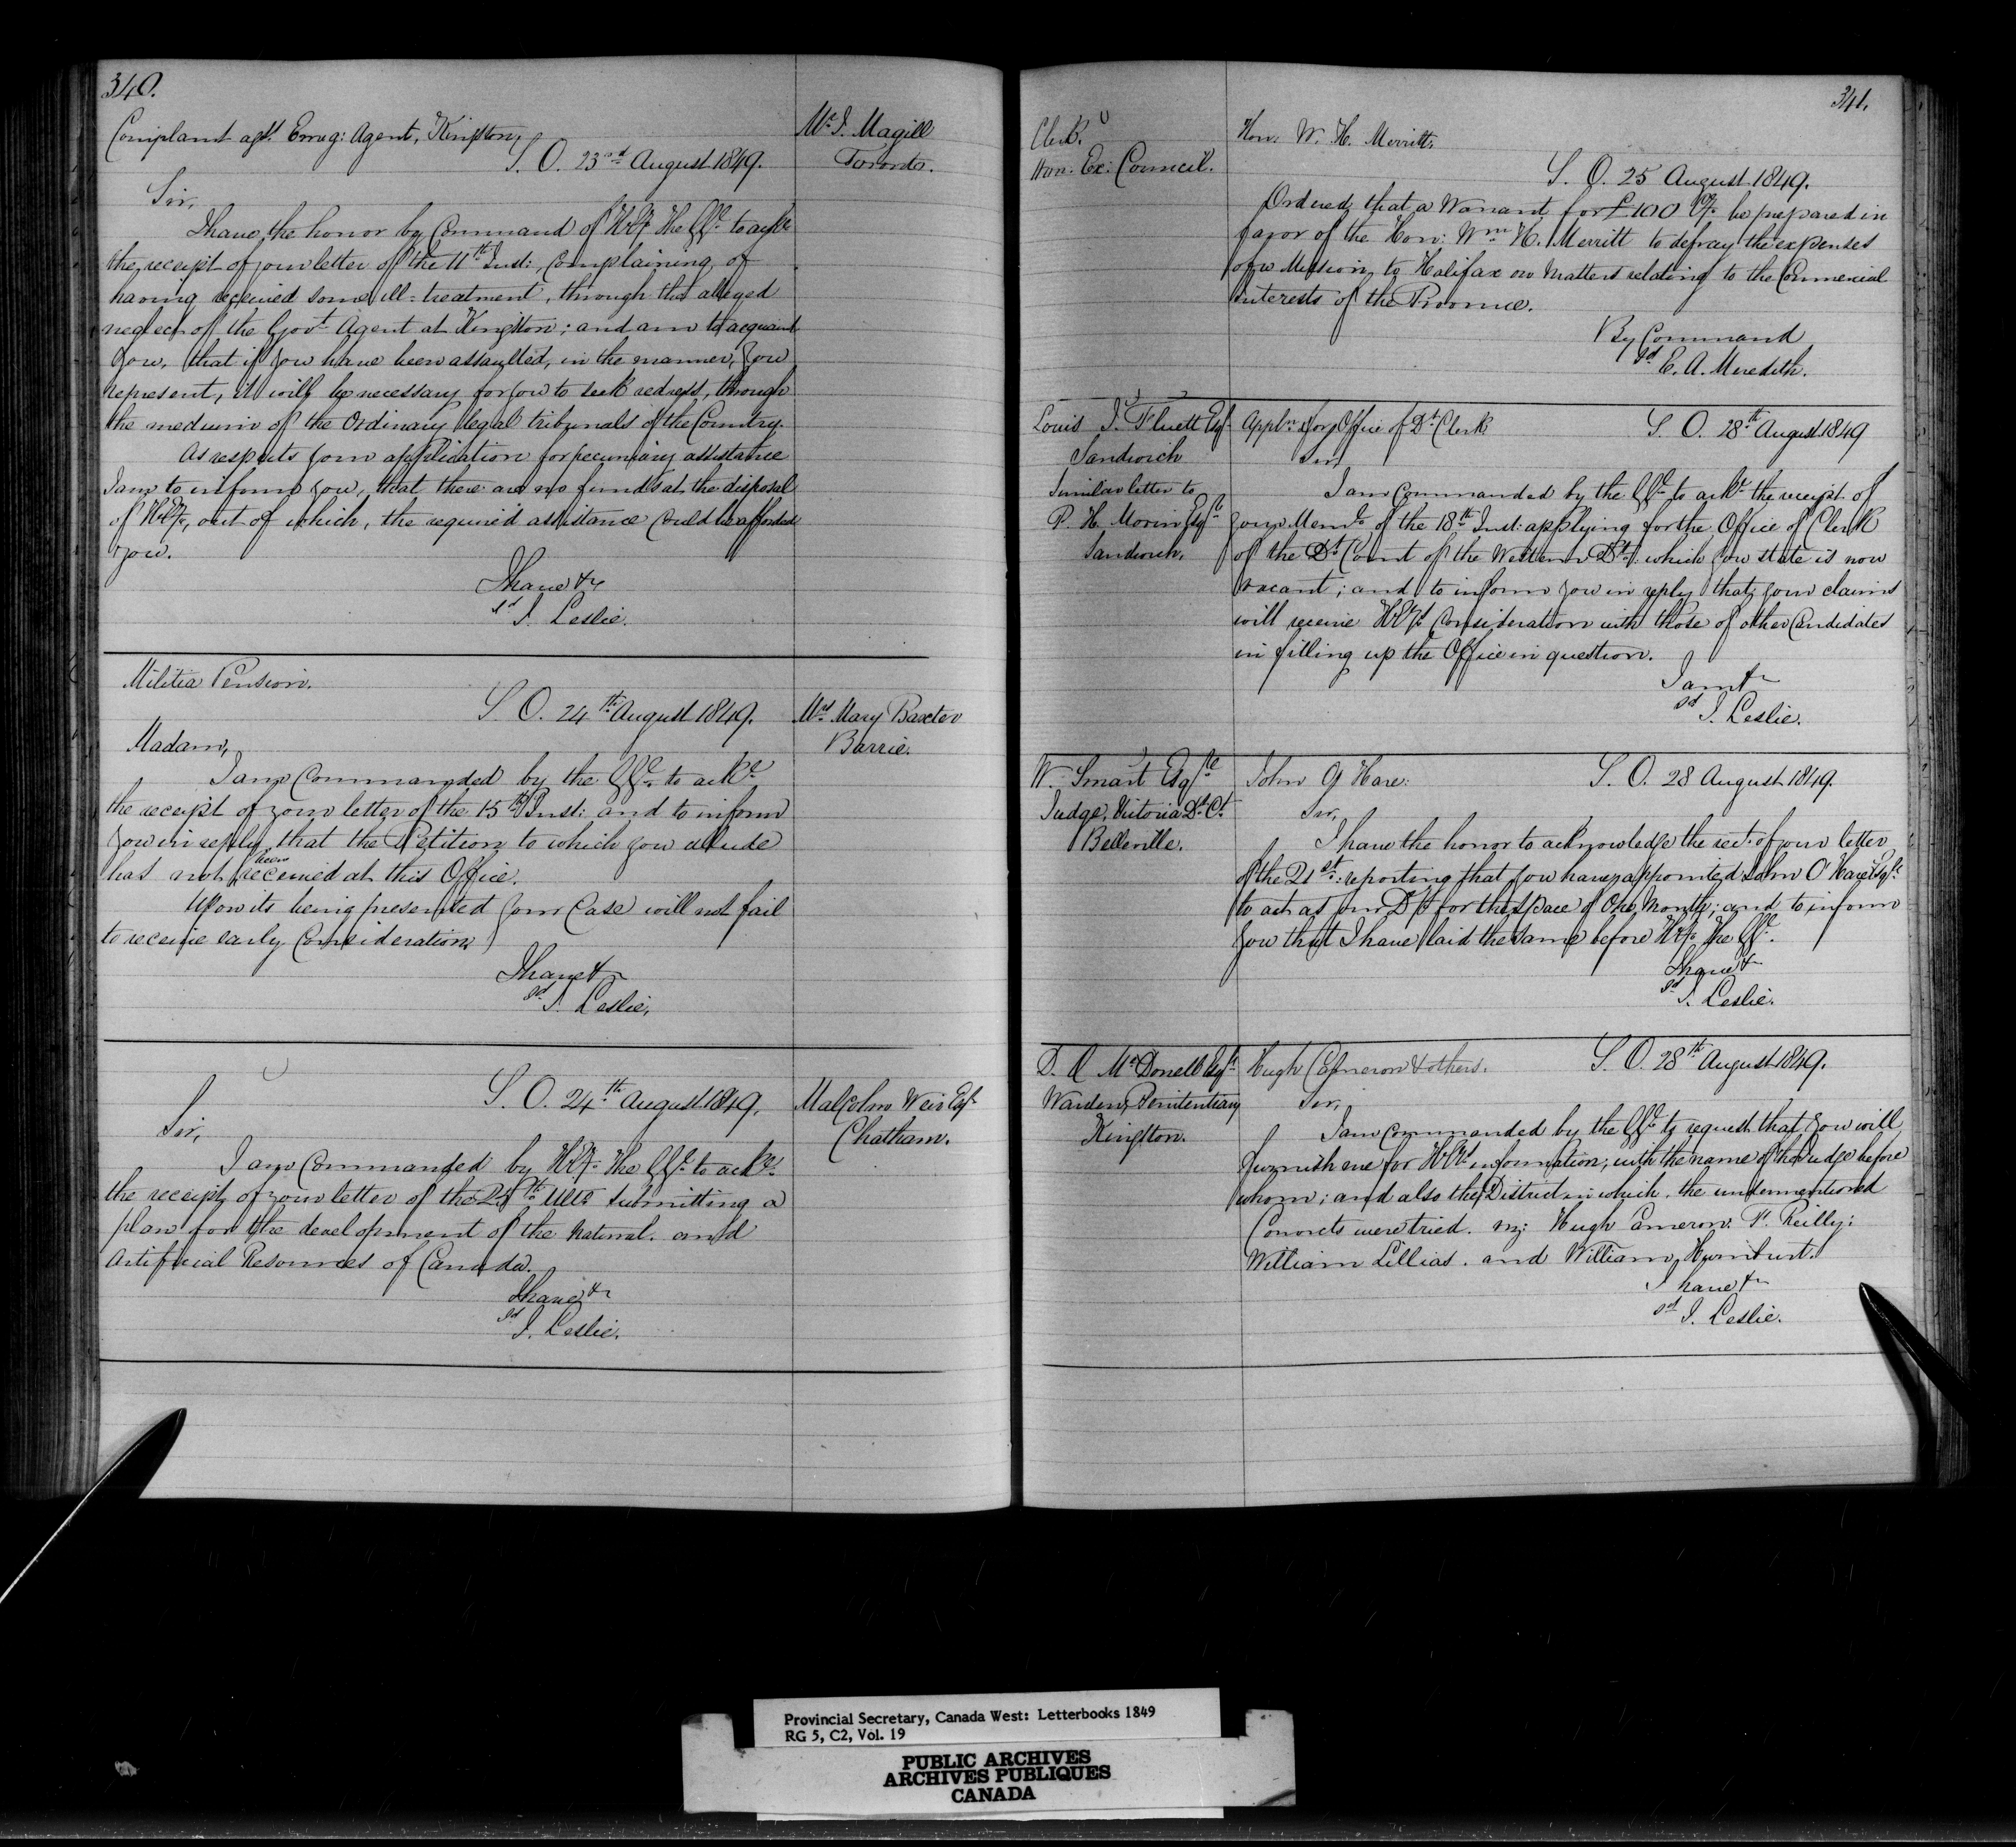 340.
Complaint agst Emig: Agent, Kingston,
S. O. 23rd August 1849.
Mr. J. Magill
Toronto.
Sir,
I have the honor by Command of H.E. The GG. to ackn
the receipt of your letter of the 11th Inst:, complaining of
having received some ill-treatment, through the alleged
neglect of the Govt. Agent at Kingston; and am to acquaint
you, that if you have been assaulted, in the manner, you
represent, it will be necessary for you to seek redress, through
the medium of the Ordinary legal tribunals of the Country.
As respects your application for pecuniary assistance
I am to inform you, that there are no funds at the disposal
of H.E., out of which, the required assistance could be afforded
you.
I have &c
sd J. Leslie.
Militia Pension.
S. O. 24th August 1849.
Mrs Mary Baxter
Barrie.
Madam,
I am Commanded by the GG. to ackge
the receipt of your letter of the 15th Inst: and to inform
you in reply that the Petition to which you allude
has not been received at this Office.
Upon its being presented your Case will not fail
to receive early Consideration,
I have &c
sd J. Leslie,
S. O. 24th August 1849.
Malcolm Weir Esqr
Chatham.
Sir,
I am Commanded by H.E. The GG. to ackge
the receipt of your letter of the Ulto submitting a
plan for the development of the Natural and
Artificial Resources of Canada.
I have &c
sd J. Leslie.
341.
Clerk
Hon: Ex: Council.
Hon: W. H. Merritt.
S. O. 25 August 1849.
Ordered, that a Warrant for £100 Cy. be prepared in
favor of the Hon: Wm H. Merritt to defray the expenses
of a Mission to Halifax on Matters relating to the Commercial
interests of the Province.
By Command
sd E. A. Meredith.
Louis J. Fluett Esqr
Sandwich
Similar letter to
P. H. Morin Esqre
Sandwich.
Appln: for Office of Dt. Clerk
S. O. 28th August 1849
Sir,
I am commanded by the GG. to ackt the receipt of
your Meml. of the 18th Inst: applying for the Office of Clerk
of the Dt. Court of the Western Dt: which you state is now
vacant; and to inform you in reply that your claims
will receive H.E's Consideration with those of other Candidates
in filling up the Office in question.
I am &c
sd J. Leslie.
W. Smart Esqre
Judge, Victoria Dt. Ct.
Belleville.
John O'Hare:
S. O. 28 August 1849.
Sir,
I have the honor to acknowledge the rect. of your letter
of the 21st: reporting that you have appointed John O'Hare Esqr.
to act as your for the space of One Month; and to inform
you that I have laid the same before H.E. The GG.
I have &c
sd J. Leslie.
McDonell Esqr
Warden, Penitentiary
Kingston.
Hugh Cameron & others.
S. O. 28th August 1849.
Sir,
I am Commanded by the GG. to request that you will
furnish me for H.E's information; with the name of the Judge before
whom; and also the District in which, the undermentioned
Convicts were tried. viz: Hugh Cameron: P. Reilly:
William Lillias. and William
I have &c
sd J. Leslie.
Provincial Secretary, Canada West: Letterbooks 1849
RG 5, C2, Vol. 19
PUBLIC ARCHIVES
ARCHIVES PUBLIQUES
CANADA